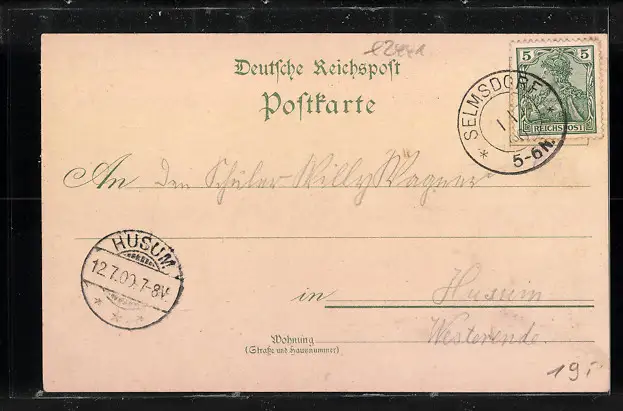 Deutsche Reichspost
Postkarte
5 5
REICHSPOST
SELMSDORF
5-6N.
An den Schüler Willy Wagner
HUSUM
12.7.00.7-8V
in Husum
Westerende.
Wohnung
(Straße und Hausnummer)
19,-